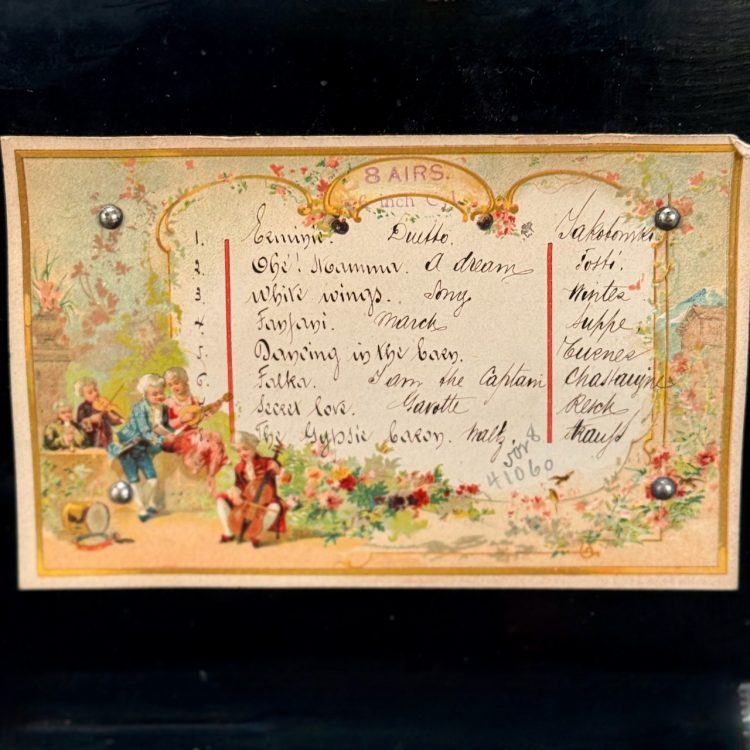 8 AIRS.
inch
1. Erminie. Duetto. Jakobowski
2 Ohé! Mamma. A dream Tosti.
3 White wings. Song Winter
4 Fanfani. March Suppe.
5 Dancing in the barn. Turner
6 Falka. I am the Captain Chassaigne
7 Secret love. Gavotte Resch
8 The Gypsie baron. Waltz. Strauss
41060